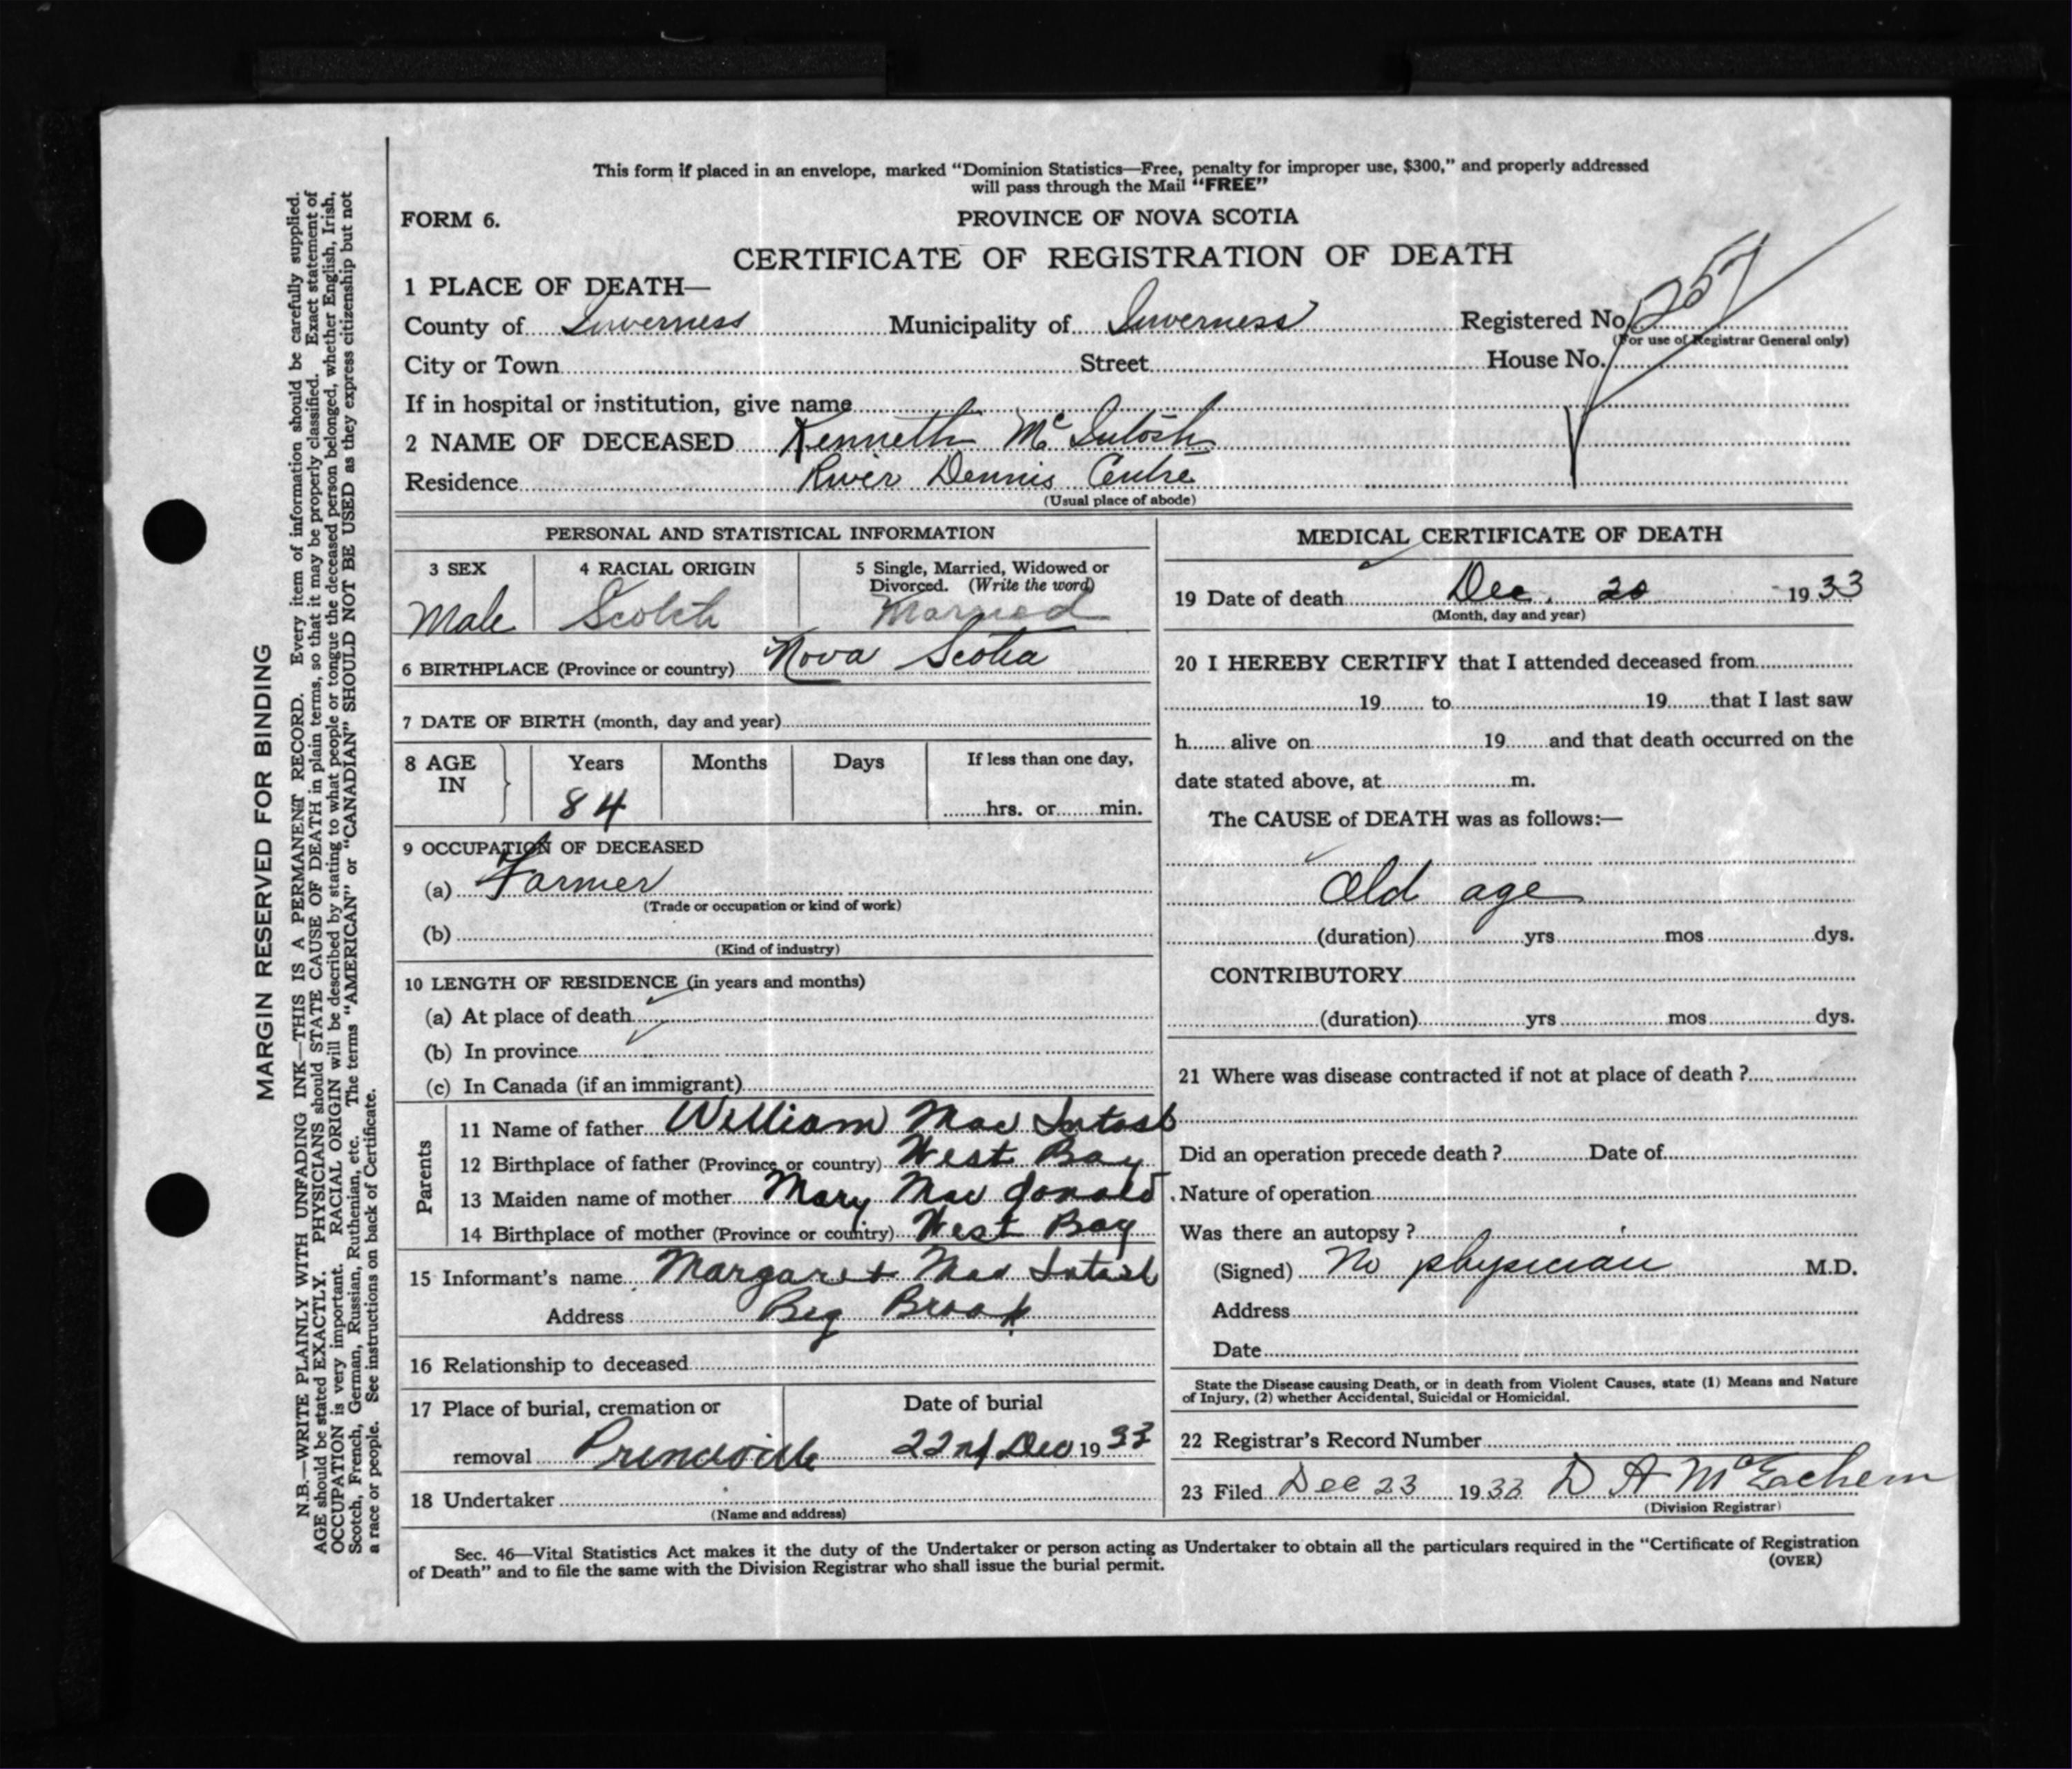 This form if placed in an envelope, marked “Dominion Statistics—Free, penalty for improper use, $300,” and properly addressed
will pass through the Mail “FREE”
FORM 6.
PROVINCE OF NOVA SCOTIA
CERTIFICATE OF REGISTRATION OF DEATH
1 PLACE OF DEATH—
County of Inverness Municipality of Inverness Registered No. 257
(For use of Registrar General only)
City or Town Street House No.
If in hospital or institution, give name
2 NAME OF DECEASED Kenneth McIntosh
Residence River Dennis Centre
(Usual place of abode)
PERSONAL AND STATISTICAL INFORMATION
3 SEX
Male
4 RACIAL ORIGIN
Scotch
5 Single, Married, Widowed or
Divorced. (Write the word)
Married
6 BIRTHPLACE (Province or country) Nova Scotia
7 DATE OF BIRTH (month, day and year)
8 AGE IN
Years Months Days If less than one day,
84 hrs. or min.
9 OCCUPATION OF DECEASED
(a) Farmer
(Trade or occupation or kind of work)
(b)
(Kind of industry)
10 LENGTH OF RESIDENCE (in years and months)
(a) At place of death
(b) In province
(c) In Canada (if an immigrant)
Parents
11 Name of father William MacIntosh
12 Birthplace of father (Province or country) West Bay
13 Maiden name of mother Mary MacDonald
14 Birthplace of mother (Province or country) West Bay
15 Informant's name Margaret MacIntosh
Address Big Brook
16 Relationship to deceased
17 Place of burial, cremation or Date of burial
removal Princeville 22nd Dec 1933
18 Undertaker
(Name and address)
MEDICAL CERTIFICATE OF DEATH
19 Date of death Dec. 20 1933
(Month, day and year)
20 I HEREBY CERTIFY that I attended deceased from
19 to 19 that I last saw
h alive on 19 and that death occurred on the
date stated above, at m.
The CAUSE of DEATH was as follows:—
Old age
(duration) yrs mos dys.
CONTRIBUTORY
(duration) yrs mos dys.
21 Where was disease contracted if not at place of death ?
Did an operation precede death ? Date of
Nature of operation
Was there an autopsy ?
(Signed) No physician M.D.
Address
Date
State the Disease causing Death, or in death from Violent Causes, state (1) Means and Nature
of Injury, (2) whether Accidental, Suicidal or Homicidal.
22 Registrar's Record Number
23 Filed Dec 23 1933 D A McEachern
(Division Registrar)
Sec. 46—Vital Statistics Act makes it the duty of the Undertaker or person acting as Undertaker to obtain all the particulars required in the “Certificate of Registration
of Death” and to file the same with the Division Registrar who shall issue the burial permit.
(OVER)
MARGIN RESERVED FOR BINDING
N.B.—WRITE PLAINLY WITH UNFADING INK—THIS IS A PERMANENT RECORD. Every item of information should be carefully supplied.
AGE should be stated EXACTLY. PHYSICIANS should STATE CAUSE OF DEATH in plain terms, so that it may be properly classified. Exact statement of
OCCUPATION is very important. RACIAL ORIGIN will be described by stating to what people or tongue the deceased person belonged, whether English, Irish,
Scotch, French, German, Russian, Ruthenian, etc. The terms “AMERICAN” or “CANADIAN” SHOULD NOT BE USED as they express citizenship but not
a race or people. See instructions on back of Certificate.